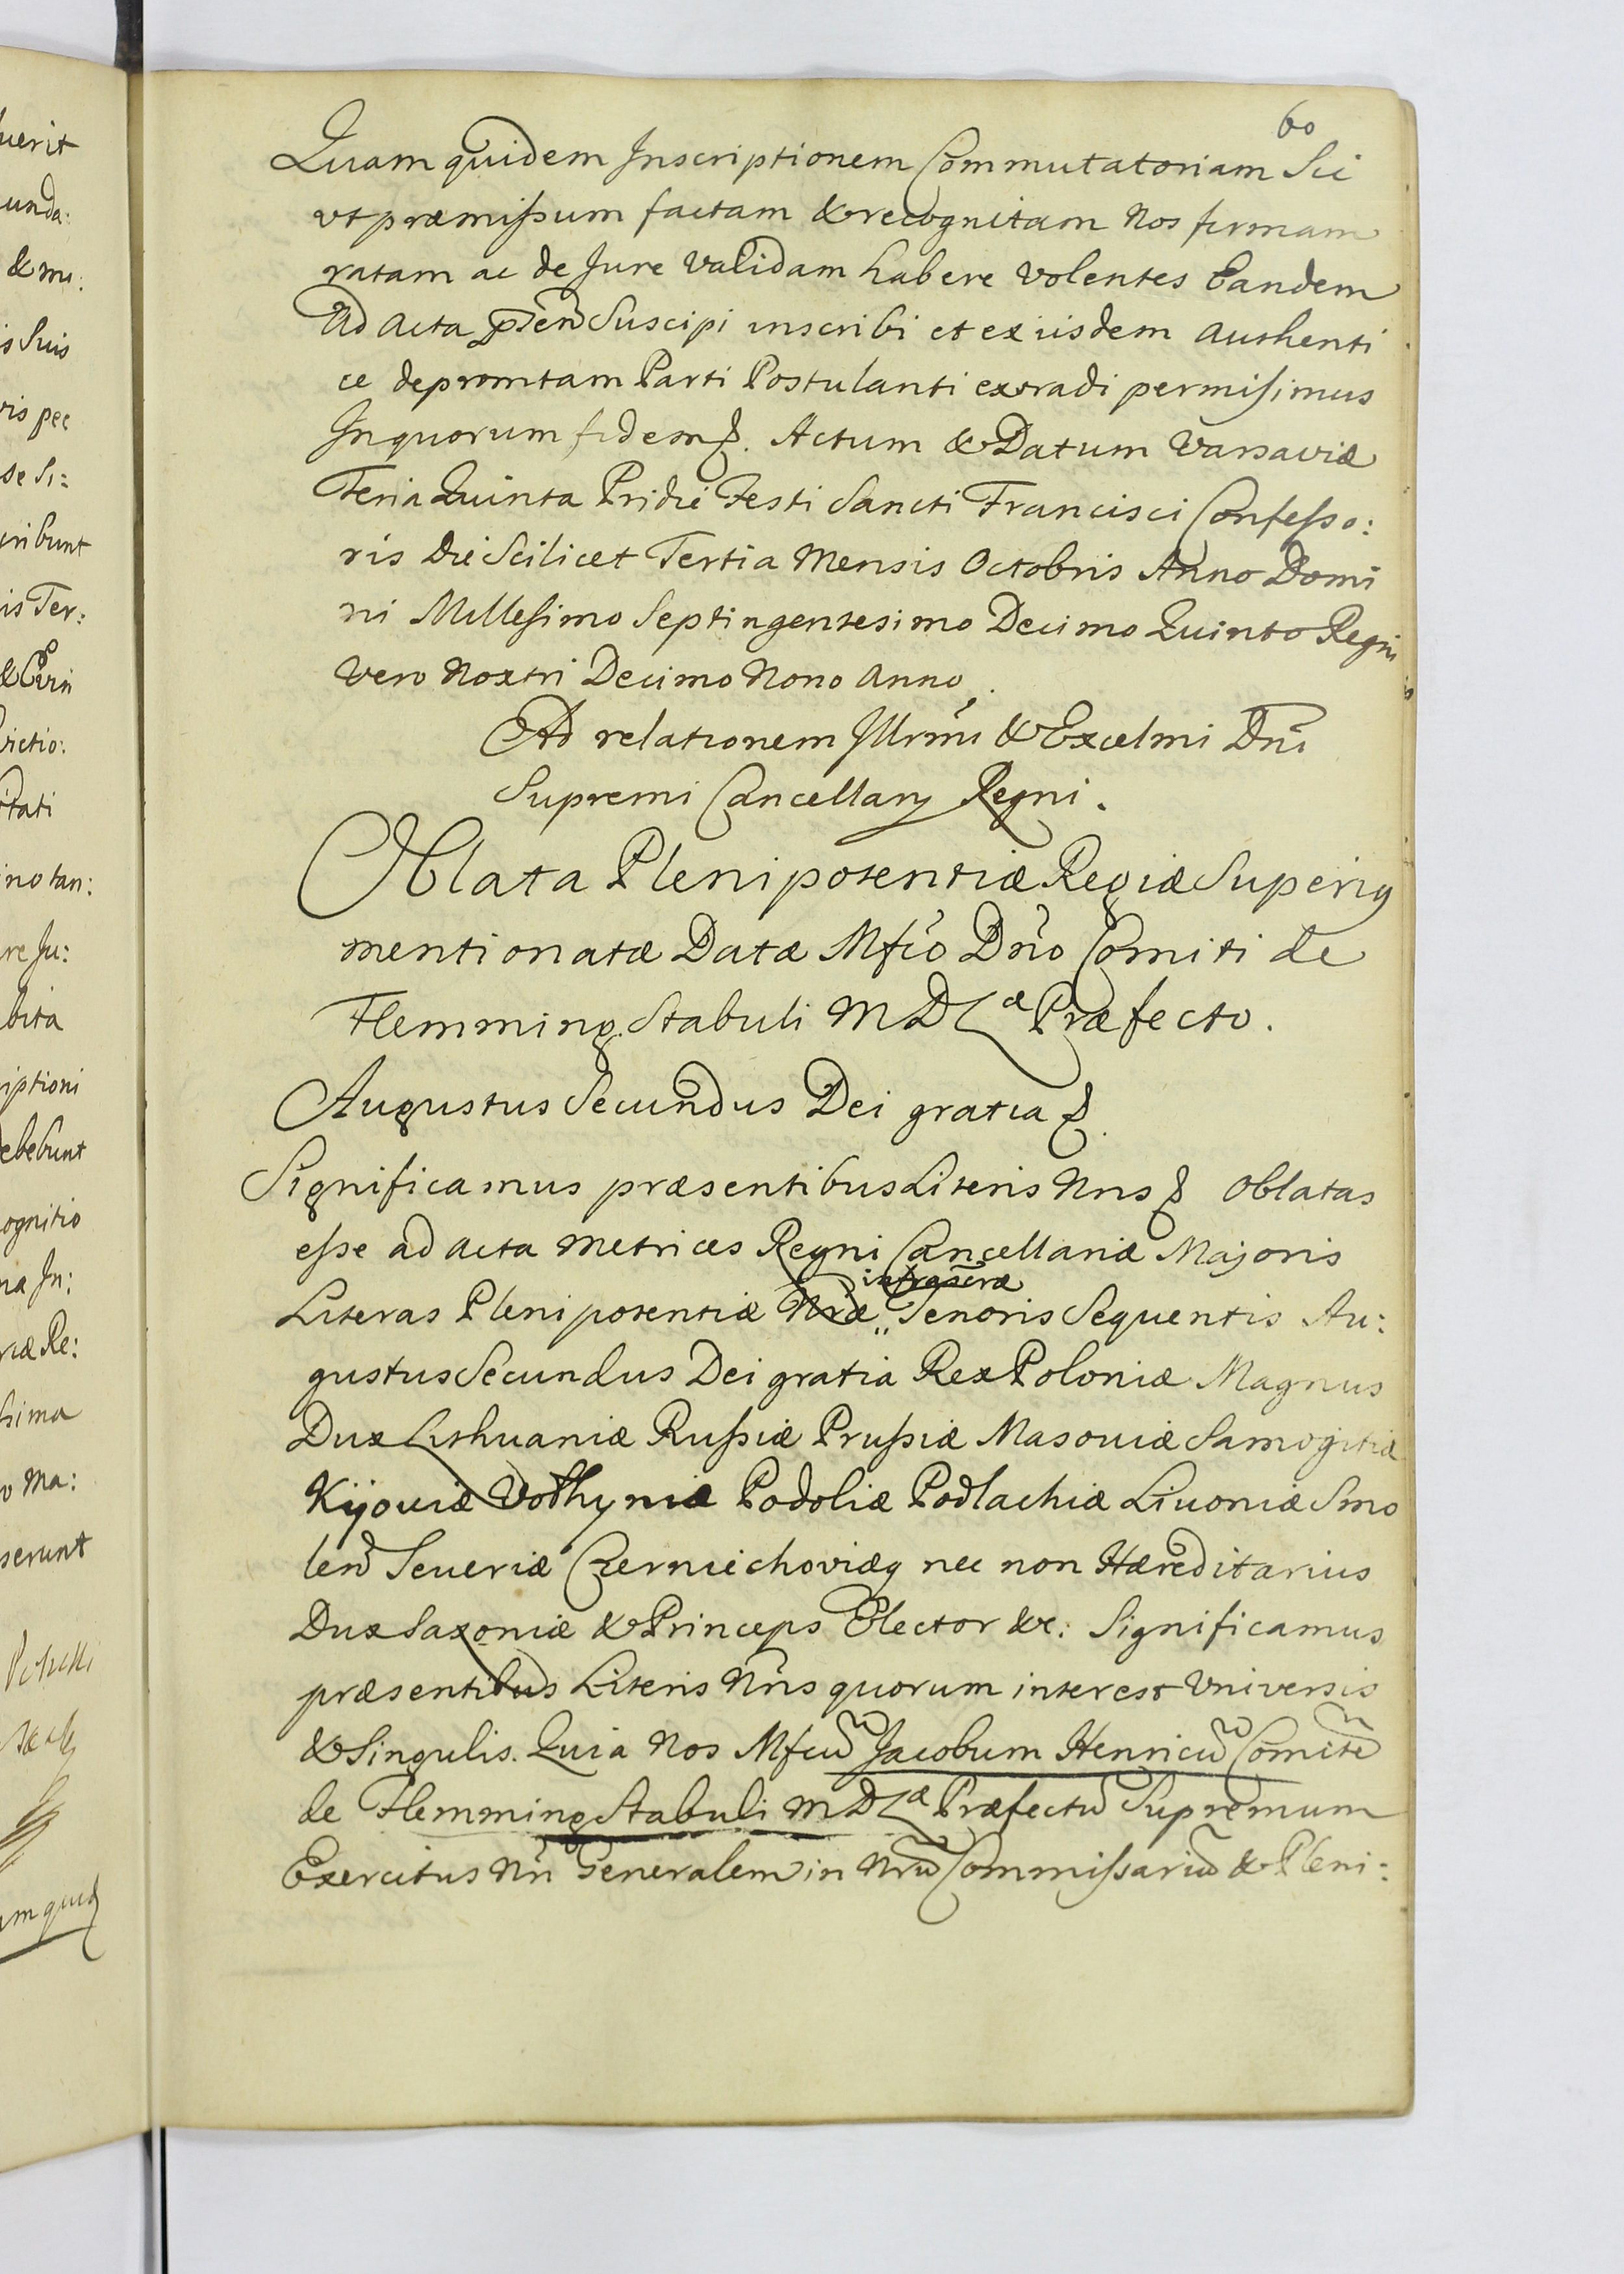 60
Quam quidem Inscriptionem Commutatoriam Sic
ut præmissum factam & recognitam Nos firmam
ratam ac de Jure validam habere volentes Eandem
Ad Acta pñen Suscipi inscribi et ex iisdem authenti
ce depromtam Parti Postulanti extradi permisimus
In quorum fidem &. Actum & Datum Varsaviæ
Feria Quinta Pridie Festi Sancti Francisci Confesso:
ris Die Scilicet Tertia Mensis Octobris Anno Domi
ni Millesimo Septingentesimo Decimo Quinto Regni
Vero Nostri Decimo Nono Anno.
Ad relationem Illrmi & Excelmi Dñi
Supremi Cancellarij Regni.
Oblata Plenipotentiæ Regiæ Superiq
mentionatæ Datæ Mfco Dño Comiti de
Flemming Stabuli M D L æ Præfecto.
Augustus Secundus Dei gratia &.
Significamus præsentibus Literis Nris & Oblatas
esse ad Acta Metrices Regni Cancellariæ Majoris
infrascræ
Literas Plenipotentiæ Nræ „ Tenoris Sequentis Au:
gustus Secundus Dei gratia Rex Poloniæ Magnus
Dux Lithuaniæ Russiæ Prussiæ Masoviæ Samogitiæ
Kijoviæ Volhyniæ Podoliæ Podlachiæ Livoniæ Smo
len Severiæ Czerniechoviæq nec non Hæreditarius
Dux Saxoniæ & Princeps Elector &c: Significamus
præsentibus Literis Nris quorum interest Universis
& Singulis. Quia Nos Mfcũ Jacobum Henricũ Comitẽ
de Flemming Stabuli M D L æ Præfectũ Supremum
Exercitus Nri Generalem in Nrũ Commissariũ & Pleni: